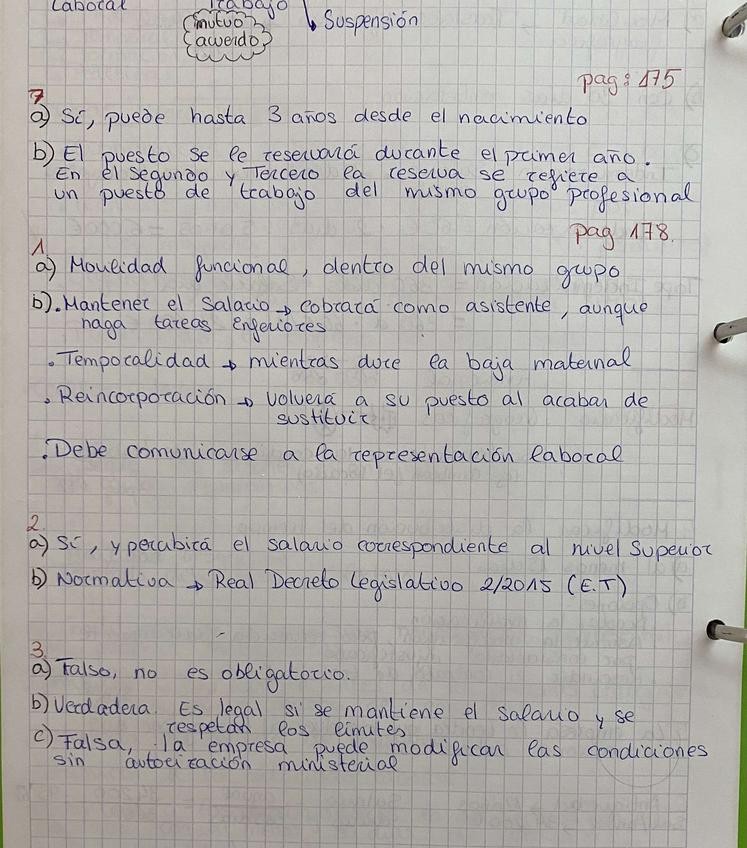 Laboral trabajo
mutuo
acuerdo
↳ Suspensión
pag: 175
7
a) Sí, puede hasta 3 años desde el nacimiento
b) El puesto se le reservará durante el primer año.
En el segundo y Tercero la reserva se refiere a
un puesto de trabajo del mismo grupo profesional
pag 178.
1
a) Movlidad funcional, dentro del mismo grupo
b). Mantener el salario → Cobrará como asistente, aunque
haga tareas inferiores
. Temporalidad → mientras dure la baja maternal
. Reincorporación → volverá a su puesto al acabar de
sustituir
. Debe comunicarse a la representación laboral
2.
a) Sí, y percibirá el salario correspondiente al nivel superior
b) Normativa → Real Decreto legislativo 2/2015 (E.T)
3.
a) Falso, no es obligatorio.
b) Verdadera. Es legal si se mantiene el salario y se
respetan los límites
c) Falsa, la empresa puede modificar las condiciones
sin autorización ministerial